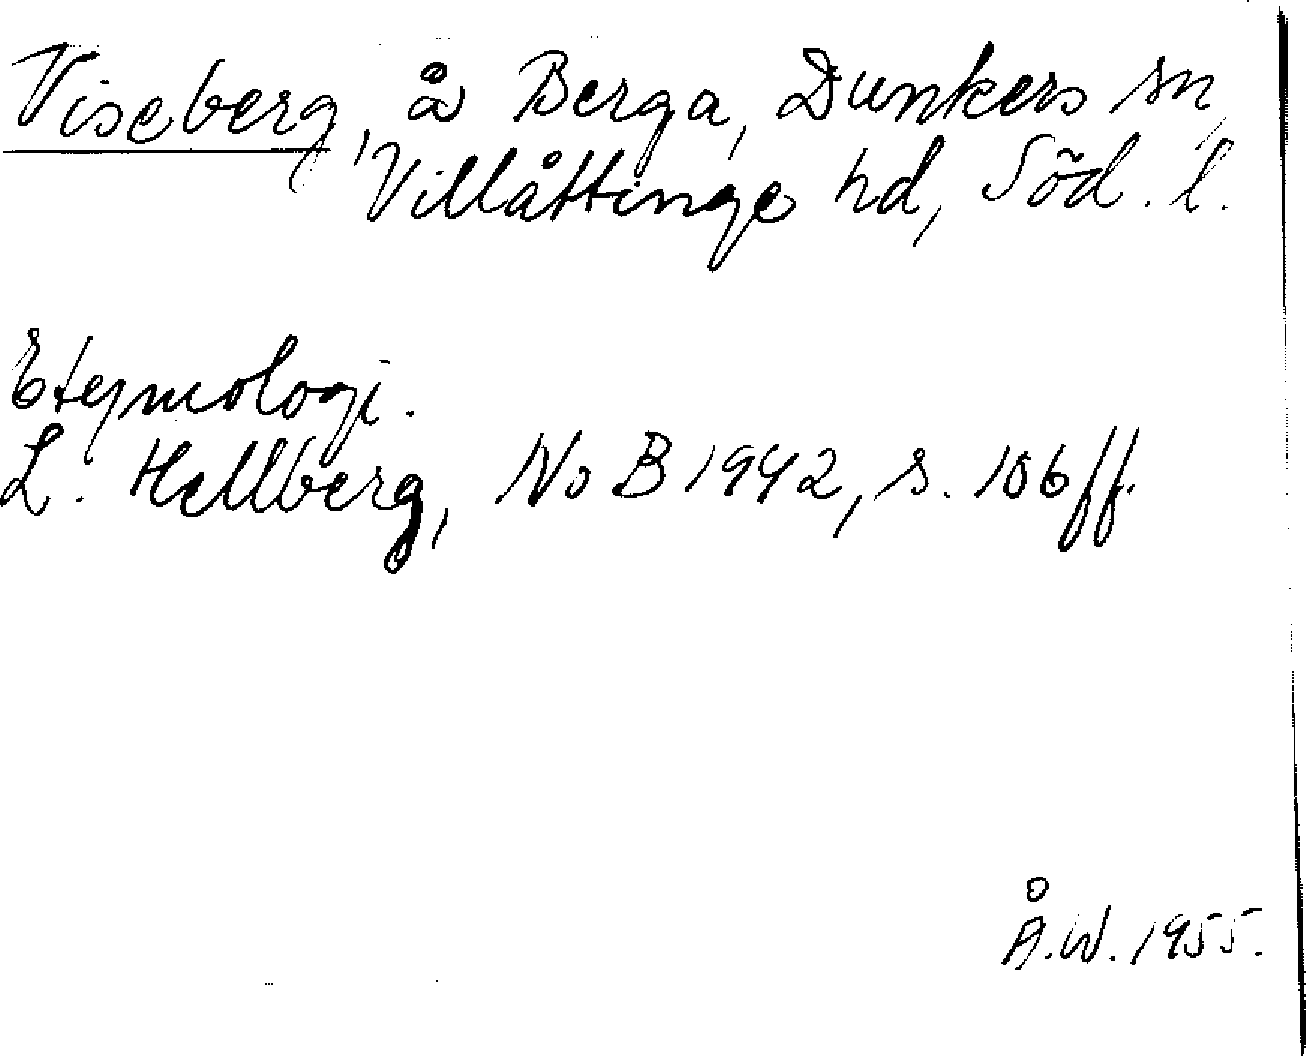 Viseberg, å Berga, Dunkers sn,
Villåttinge hd, Söd. l.
Etymologi.
L. Hellberg, NoB 1942, s. 106 ff.
Å.W. 1955.